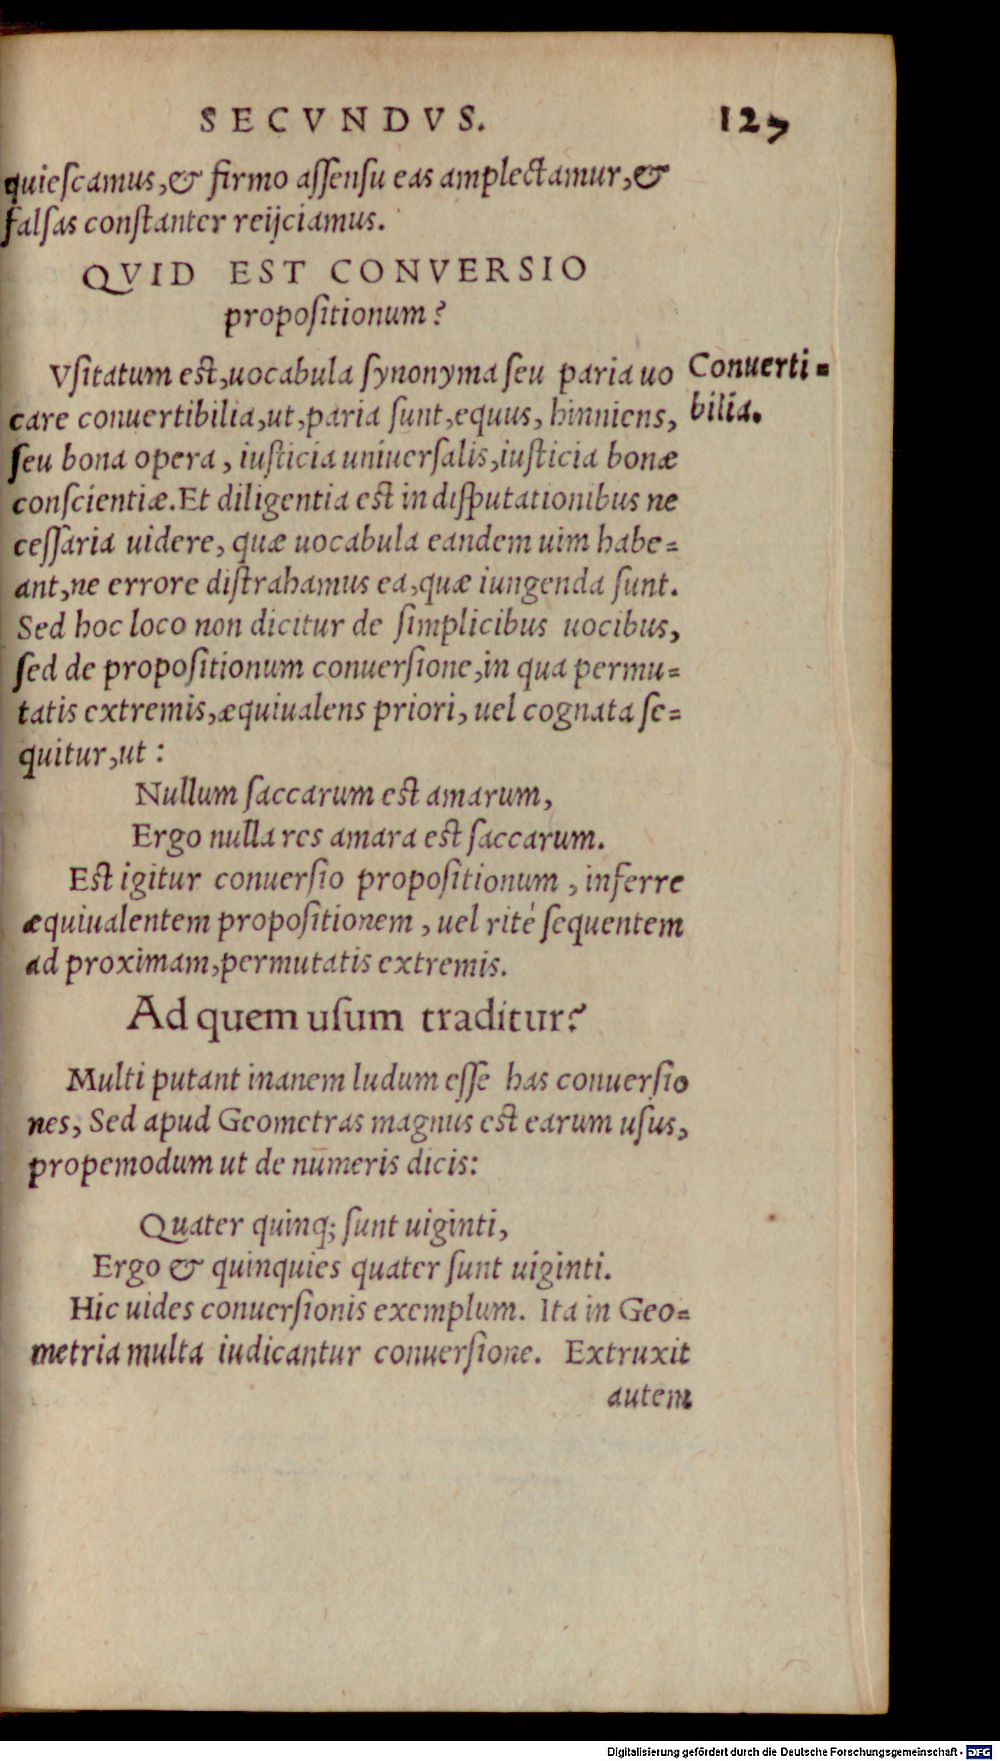 SECVNDVS. 127
quieſcamus, & firmo aſſenſu eas amplectamur, &
falſas conſtanter reijciamus.
QVID EST CONVERSIO
propoſitionum?
Vſitatum eſt, uocabula ſynonyma ſeu paria uo
care conuertibilia, ut, paria ſunt, equus, hinniens,
ſeu bona opera, iuſticia uniuerſalis, iuſticia bonæ
conſcientiæ. Et diligentia eſt in diſputationibus ne
ceſſaria uidere, quæ uocabula eandem uim habe=
ant, ne errore diſtrahamus ea, quæ iungenda ſunt.
Sed hoc loco non dicitur de ſimplicibus uocibus,
ſed de propoſitionum conuerſione, in qua permu=
tatis extremis, æquiualens priori, uel cognata ſe=
quitur, ut:
Conuerti=
bilia.
Nullum ſaccarum eſt amarum,
Ergo nulla res amara eſt ſaccarum.
Eſt igitur conuerſio propoſitionum, inferre
æquiualentem propoſitionem, uel rité ſequentem
ad proximam, permutatis extremis.
Ad quem uſum traditur?
Multi putant inanem ludum eſſe has conuerſio
nes, Sed apud Geometras magnus eſt earum uſus,
propemodum ut de nūmeris dicis:
Quater quinq; ſunt uiginti,
Ergo & quinquies quater ſunt uiginti.
Hic uides conuerſionis exemplum. Ita in Geo=
metria multa iudicantur conuerſione. Extruxit
autem
Digitalisierung gefördert durch die Deutsche Forschungsgemeinschaft - DFG